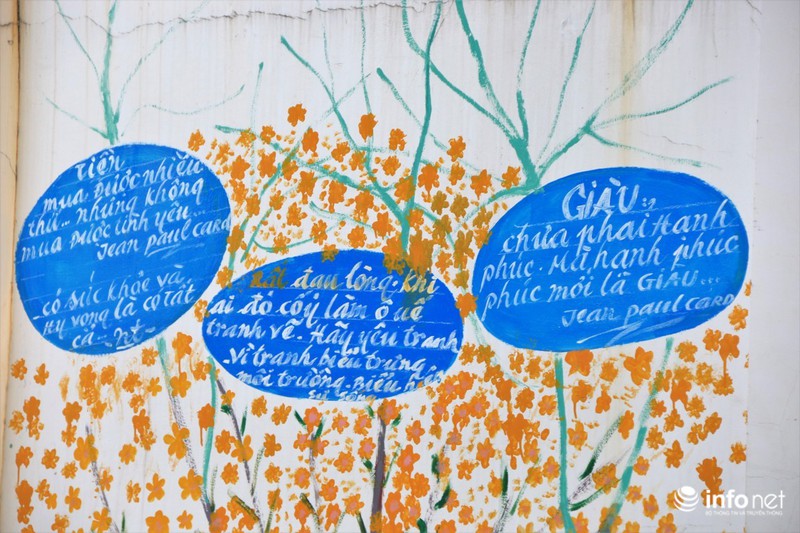 Tiền
mua được nhiều
thứ... nhưng không
mua được tình yêu...
Jean Paul Card
có sức khỏe và
Hy vọng là có tất
cả - Nt -
Rất đau lòng khi
ai đó cố ý làm ô uế
tranh vẽ. Hãy yêu tranh
vì tranh biểu trưng
môi trường. Biểu hiện
sự sống
GIÀU..
chưa phải Hạnh
phúc. Mà hạnh phúc
phúc mới là GIÀU...
Jean paul CARD
infonet
BỘ THÔNG TIN VÀ TRUYỀN THÔNG